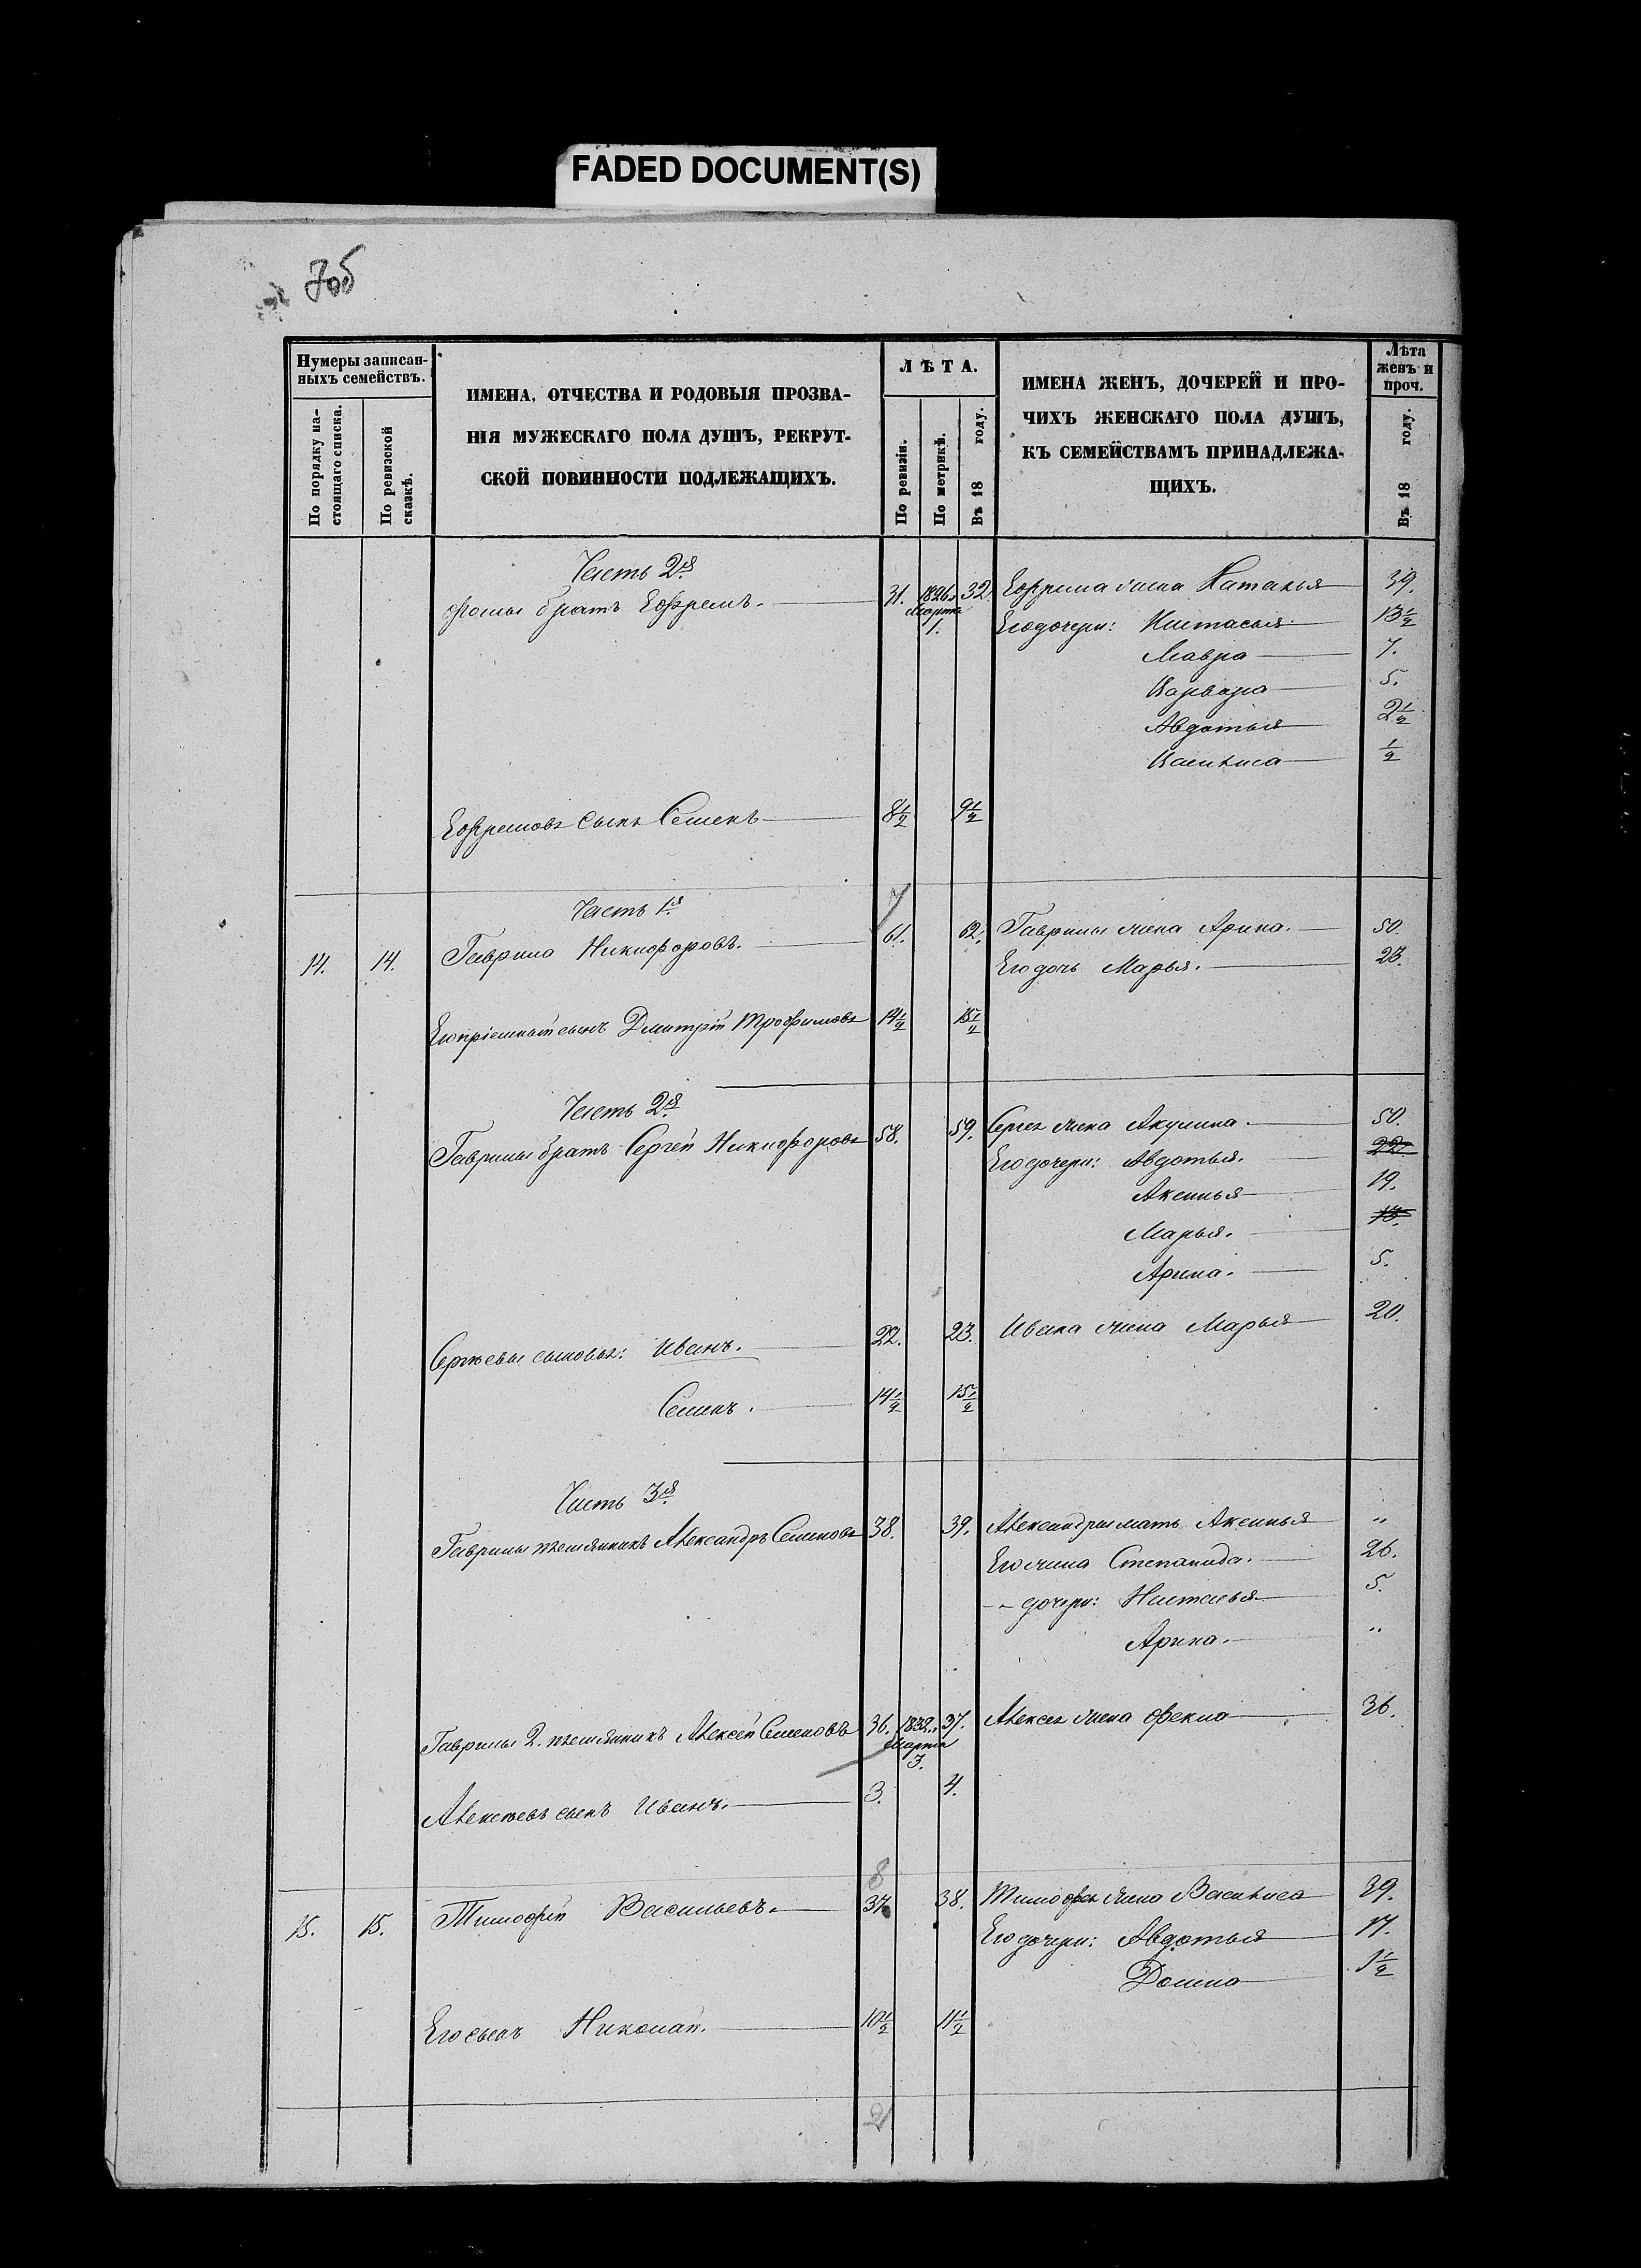 FADED DOCUMENT(S)
Нумеры записан-
ныхъ семействъ.
По порядку на-
стоящаго списка.
По ревизской
сказкѣ.
ИМЕНА, ОТЧЕСТВА И РОДОВЫЯ ПРОЗВА-
НІЯ МУЖЕСКАГО ПОЛА ДУШЪ, РЕКРУТ-
СКОЙ ПОВИННОСТИ ПОДЛЕЖАЩИХЪ.
ЛѢТА.
По ревизіи.
По метрикѣ.
Въ 18 году.
ИМЕНА ЖЕНЪ, ДОЧЕРЕЙ И ПРО-
ЧИХЪ ЖЕНСКАГО ПОЛА ДУШЪ,
КЪ СЕМЕЙСТВАМЪ ПРИНАДЛЕЖА-
ЩИХЪ.
Лѣта
женъ и
проч.
Въ 18 году.
Часть 2я
Фомы братъ Ефремъ. 31. 1826. 32. Ефрема жена Наталья 39.
Марта
1.
Его дочери: Настасья 13 1/2
Мавра 7.
Варвара 5.
Авдотья 2 1/2
Василиса 1/2
Ефремовъ сынъ Семенъ 8 1/2 9 1/2
7
Часть 1я
14. 14. Гаврило Никифоровъ. 61. 62. Гаврилы жена Арина. 50.
Его дочь Марья. 23.
Его пріемный сынъ Дмитрій Трофимовъ 14 1/2 15 1/2
Часть 2я
Гаврилы братъ Сергей Никифоровъ 58. 59. Сергея жена Акулина. 50.
Его дочери: Авдотья. 22.
Аксинья 19.
Марья. 13.
Арина. 5.
Сергѣевы сыновья: Иванъ. 22. 23. Ивана жена Марья 20.
Семенъ. 14 1/2 15 1/2
Часть 3я
Гаврилы племянникъ Александръ Семеновъ 38. 39. Александры мать Аксинья "
Его жена Степанида. 26.
- - дочери: Настасья 5.
Арина. "
Гаврилы 2. племянникъ Алексей Семеновъ 36. 1832. 37. Алексея жена Фекла 36.
Марта
3.
Алексѣевъ сынъ Иванъ. 3. 4.
8
15. 15. Тимофей Васильевъ. 37. 38. Тимофея жена Василиса 39.
Его дочери: Авдотья 17.
Домна 1 1/2
Его сынъ Николай. 10 1/2 11 1/2
2